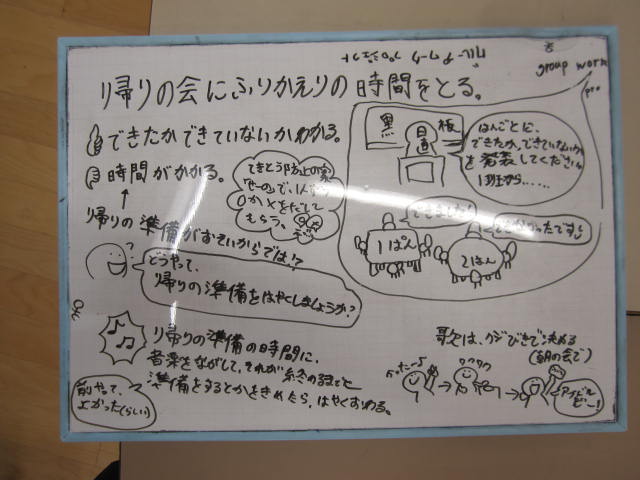 group work
帰りの会にふりかえりの時間をとる。
できたかできていないかわかる。
時間がかかる。
帰りの準備がおそいからでは!?
どうやって、
帰りの準備をはやくしましょうか?
帰りの準備の時間に、
音楽をながして、それが終わるまでに
準備をするとかをきめたら、はやくすわる。
前やって、
よかった(らしい)
黒
板
日直
はんごとに、
できたか、できていないか
を発表してください。
1班から……
できました!
できなかったです。
1ぱん
2はん
歌は、クジびきで決める
(朝の会で)
ワクワク